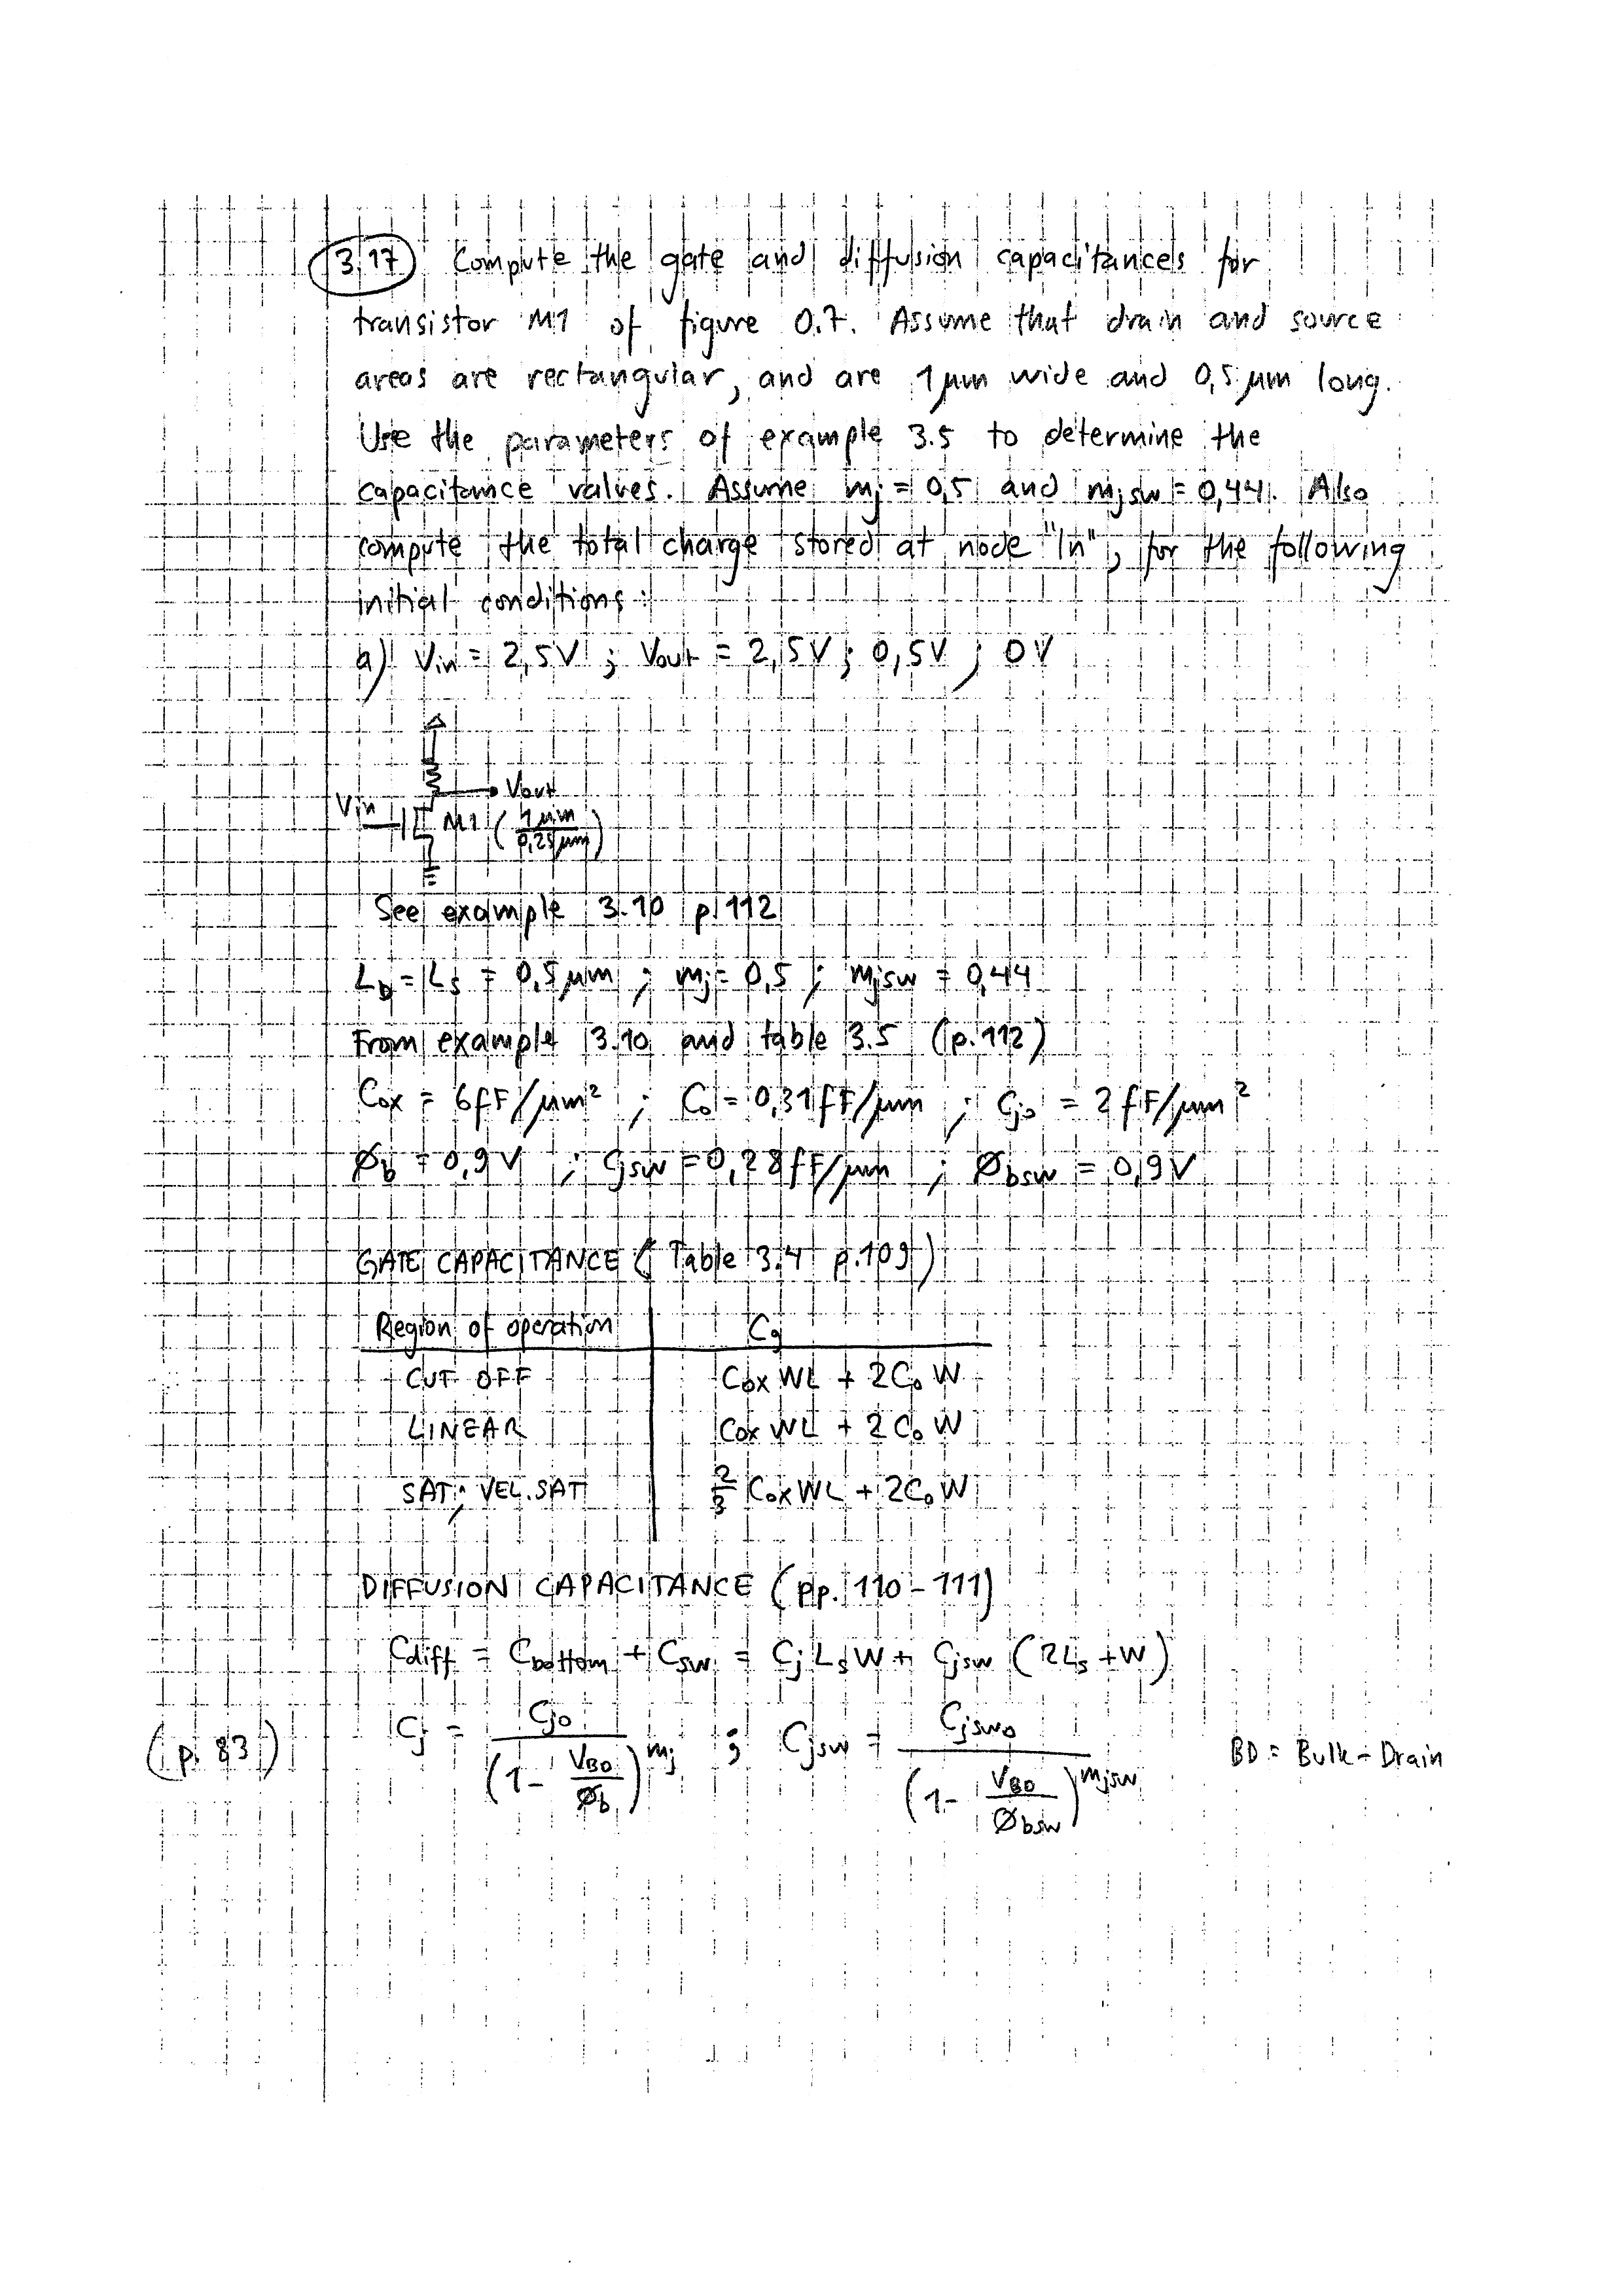 3,17 Compute the gate and diffusion capacitances for
transistor M1 of figure 0.7. Assume that drain and source
areas are rectangular, and are 1 μm wide and 0,5 μm long.
Use the parameters of example 3.5 to determine the
capacitance values. Assume mj = 0,5 and mjsw = 0,44. Also
compute the total charge stored at node "In", for the following
initial conditions:
a) Vin = 2,5V ; Vout = 2,5V ; 0,5V ; 0V
Vout
Vin
M1 (1 μm / 0,25 μm)
See example 3.10 p. 112
LD = LS = 0,5 μm ; mj = 0,5 ; mjsw = 0,44
From example 3.10 and table 3.5 (p. 112)
Cox = 6 fF/μm² ; Co = 0,31 fF/μm ; Cjo = 2 fF/μm²
Øb = 0,9 V ; Cjsw = 0,28 fF/μm ; Øbsw = 0,9 V
GATE CAPACITANCE ( Table 3.4 p. 109 )
Region of operation Cg
CUT OFF Cox WL + 2Co W
LINEAR Cox WL + 2Co W
SAT; VEL. SAT 2/3 Cox WL + 2Co W
DIFFUSION CAPACITANCE (pp. 110 - 111)
Cdiff = Cbottom + Csw = Cj Ls W + Cjsw (2Ls + W)
(p. 83) Cj = Cjo / (1 - VBD / Øb)^mj ; Cjsw = Cjswo / (1 - VBD / Øbsw)^mjsw BD = Bulk - Drain